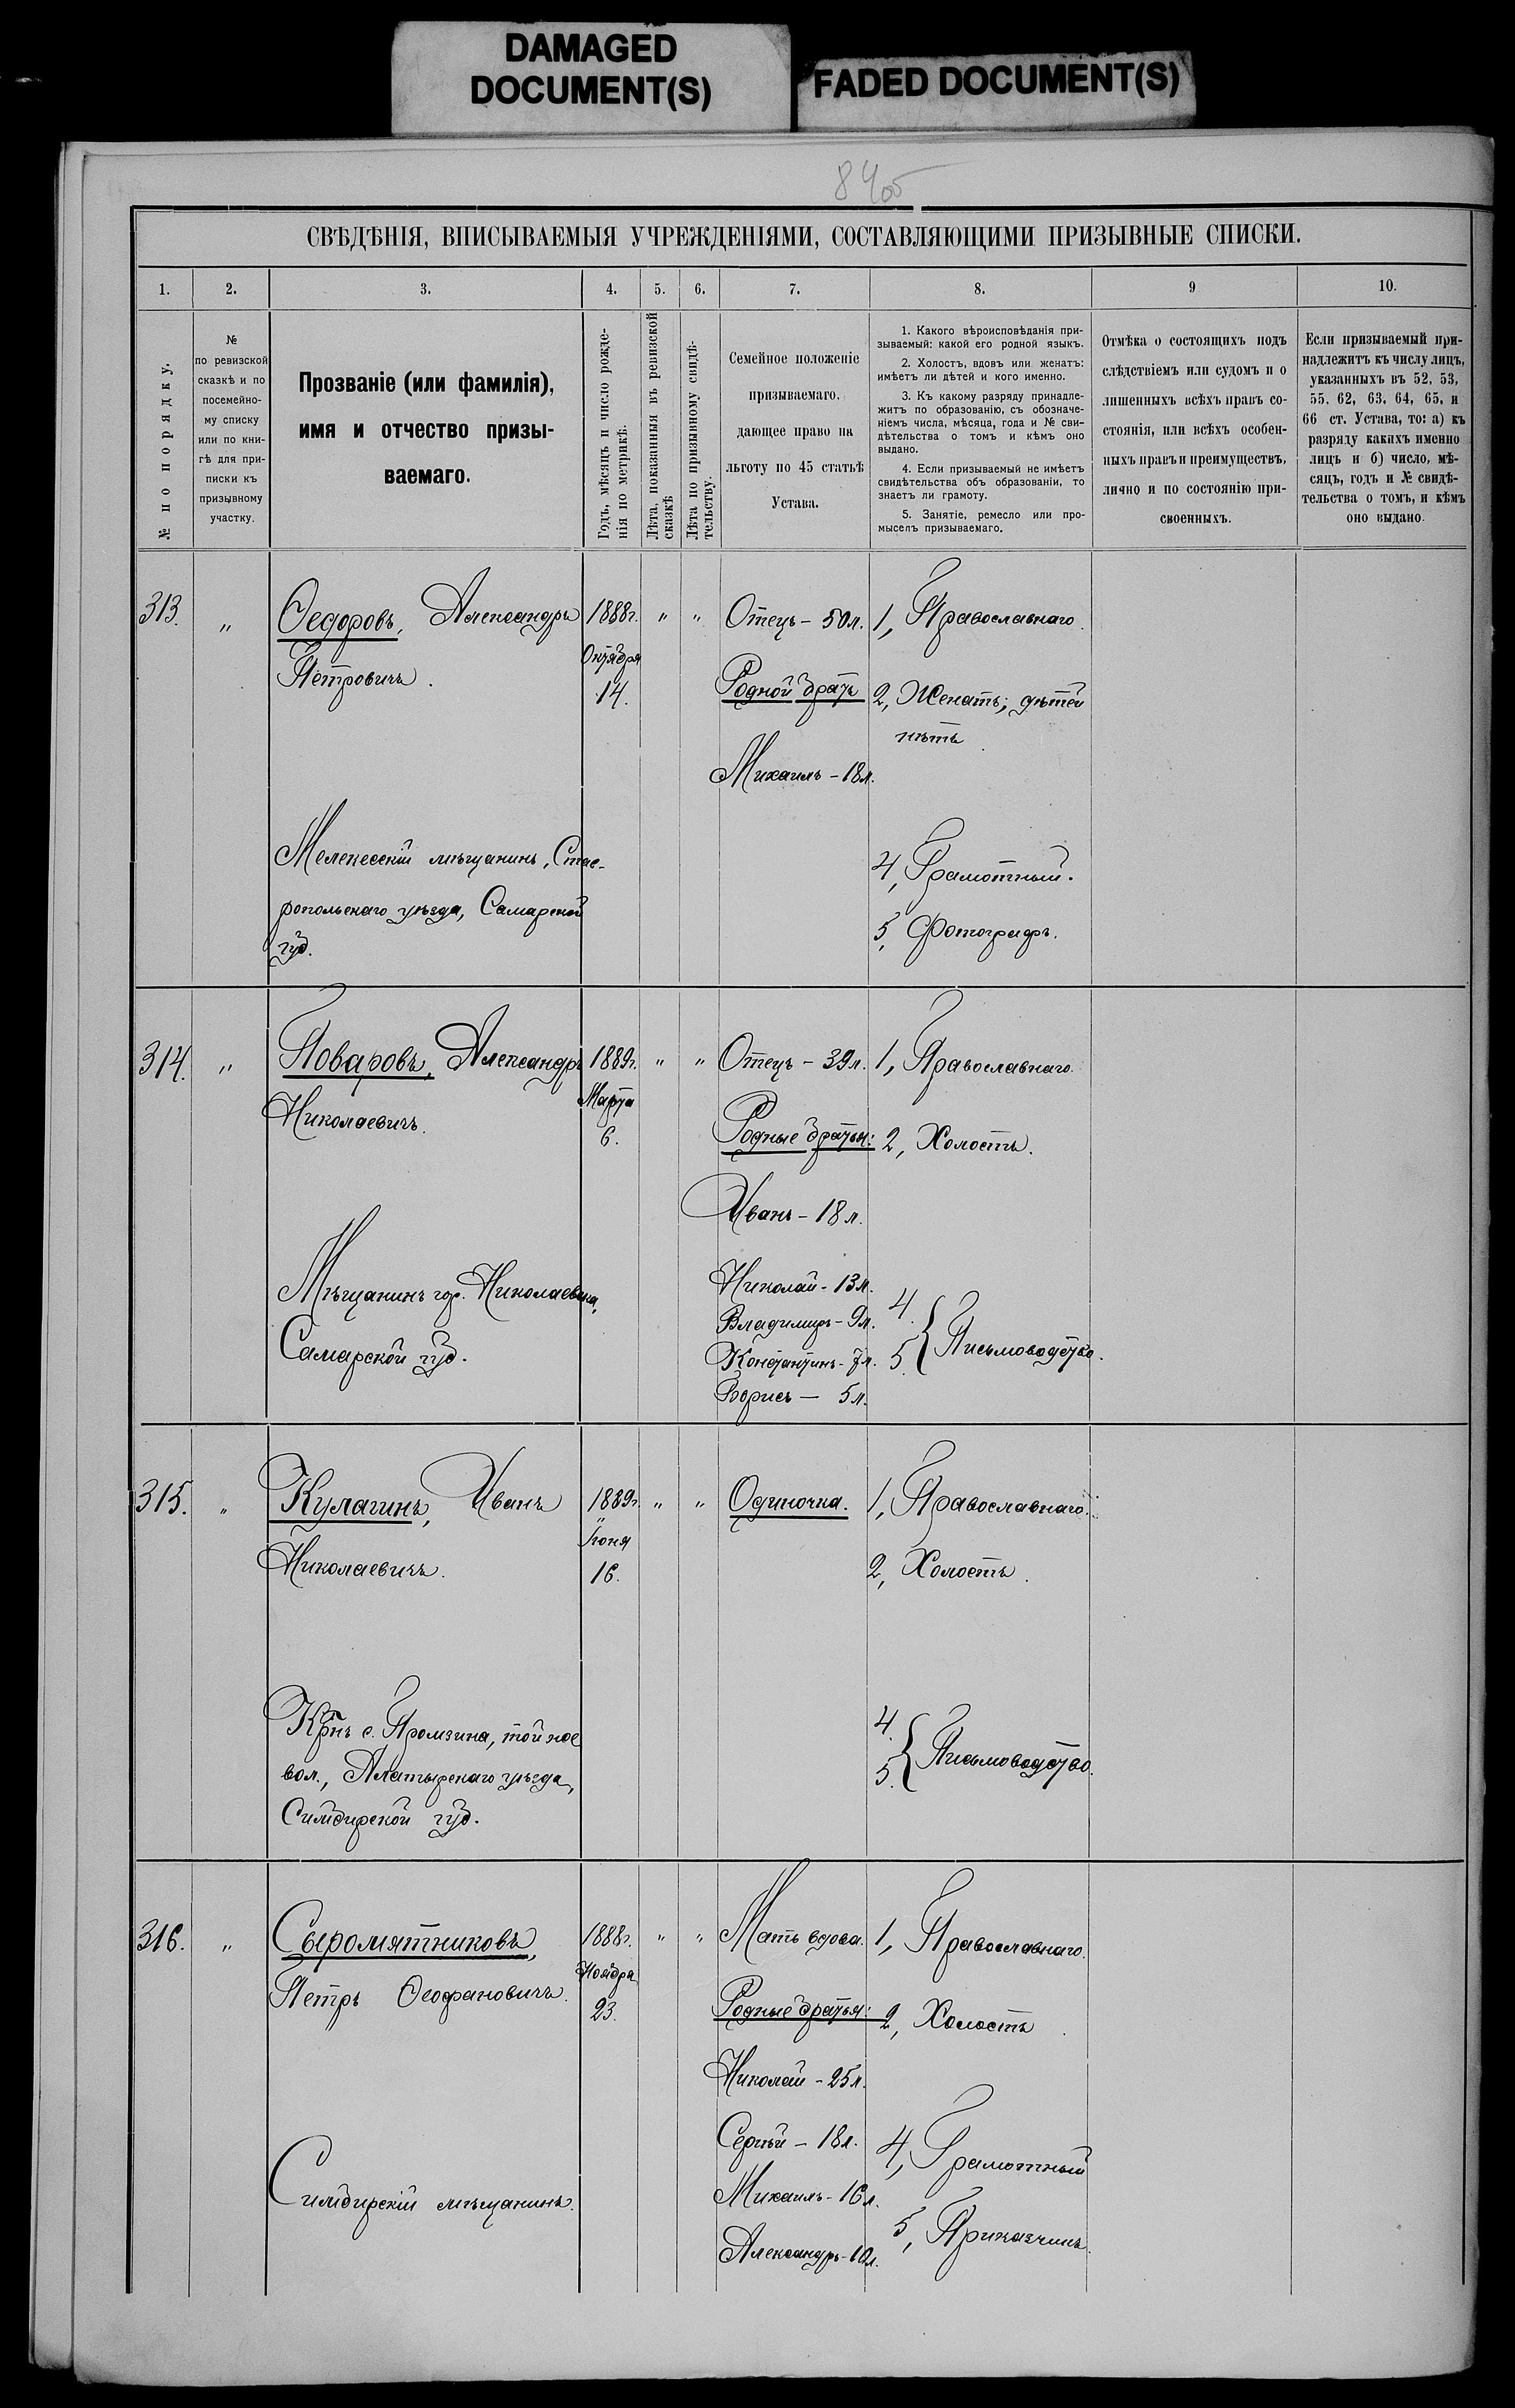 DAMAGED
DOCUMENT(S)
FADED DOCUMENT(S)
СВѢДѢНІЯ, ВПИСЫВАЕМЫЯ УЧРЕЖДЕНІЯМИ, СОСТАВЛЯЮЩИМИ ПРИЗЫВНЫЕ СПИСКИ.
1. 2. 3. 4. 5. 6. 7. 8. 9 10.
№ по порядку.
№
по ревизской
сказкѣ и по
посемейно-
му списку
или по кни-
гѣ для при-
писки къ
призывному
участку.
Прозваніе (или фамилія),
имя и отчество призы-
ваемаго.
Годъ, мѣсяцъ и число рожде-
нія по метрикѣ.
Лѣта, показанныя въ ревизской
сказкѣ
Лѣта по призывному свидѣ-
тельству.
Семейное положеніе
призываемаго,
дающее право на
льготу по 45 статьѣ
Устава.
1. Какого вѣроисповѣданія при-
зываемый: какой его родной языкъ.
2. Холостъ, вдовъ или женатъ:
имѣетъ ли дѣтей и кого именно.
3. Къ какому разряду принадле-
житъ по образованію, съ обозначе-
ніемъ числа, мѣсяца, года и № сви-
дѣтельства о томъ и кѣмъ оно
выдано.
4. Если призываемый не имѣетъ
свидѣтельства объ образованіи, то
знаетъ ли грамоту.
5. Занятіе, ремесло или про-
мыселъ призываемаго.
Отмѣка о состоящихъ подъ
слѣдствіемъ или судомъ и о
лишенныхъ всѣхъ правъ со-
стоянія, или всѣхъ особен-
ныхъ правъ и преимуществъ,
лично и по состоянію при-
своенныхъ.
Если призываемый при-
надлежитъ къ числу лицъ,
указанныхъ въ 52, 53,
55, 62, 63, 64, 65, и
66 ст. Устава, то: а) къ
разряду какихъ именно
лицъ и б) число, мѣ-
сяцъ, годъ и № свидѣ-
тельства о томъ, и кѣмъ
оно выдано.
313. " Ѳедоровъ, Александръ 1888г. " " Отецъ - 50л. 1, Православнаго.
Петровичъ. Октября 14. Родной братъ 2, Женатъ; дѣтей
нѣтъ.
Михаилъ - 18л.
Мелекесскій мѣщанинъ, Став-
ропольскаго уѣзда, Самарской
губ.
4, Грамотный.
5, Фотографъ.
314. " Поваровъ, Александръ 1889г. " " Отецъ - 39л. 1, Православнаго.
Николаевичъ. Марта 6. Родные братья: 2, Холостъ.
Иванъ - 18 л.
Мѣщанинъ гор. Николаевска,
Самарской губ.
Николай - 13л.
Владимиръ - 9л.
Константинъ - 7л.
Борисъ — 5л.
4.
5. { Письмоводство.
315. " Кулагинъ, Иванъ 1889г. " " Одиночка. 1, Православнаго.
Николаевичъ. Іюня 16. 2, Холостъ.
Крнъ с. Промзина, той же
вол., Алатырскаго уѣзда,
Симбирской губ.
4.
5. { Письмоводство.
316. " Сыромятниковъ, 1888г. " " Мать вдова. 1, Православнаго.
Петръ Ѳеофановичъ. Ноября 23. Родные братья: 2, Холостъ.
Николай - 25л.
Сергѣй - 18л. 4, Грамотный
Симбирскій мѣщанинъ. Михаилъ - 16л.
5, Приказчикъ.
Александръ - 10л.